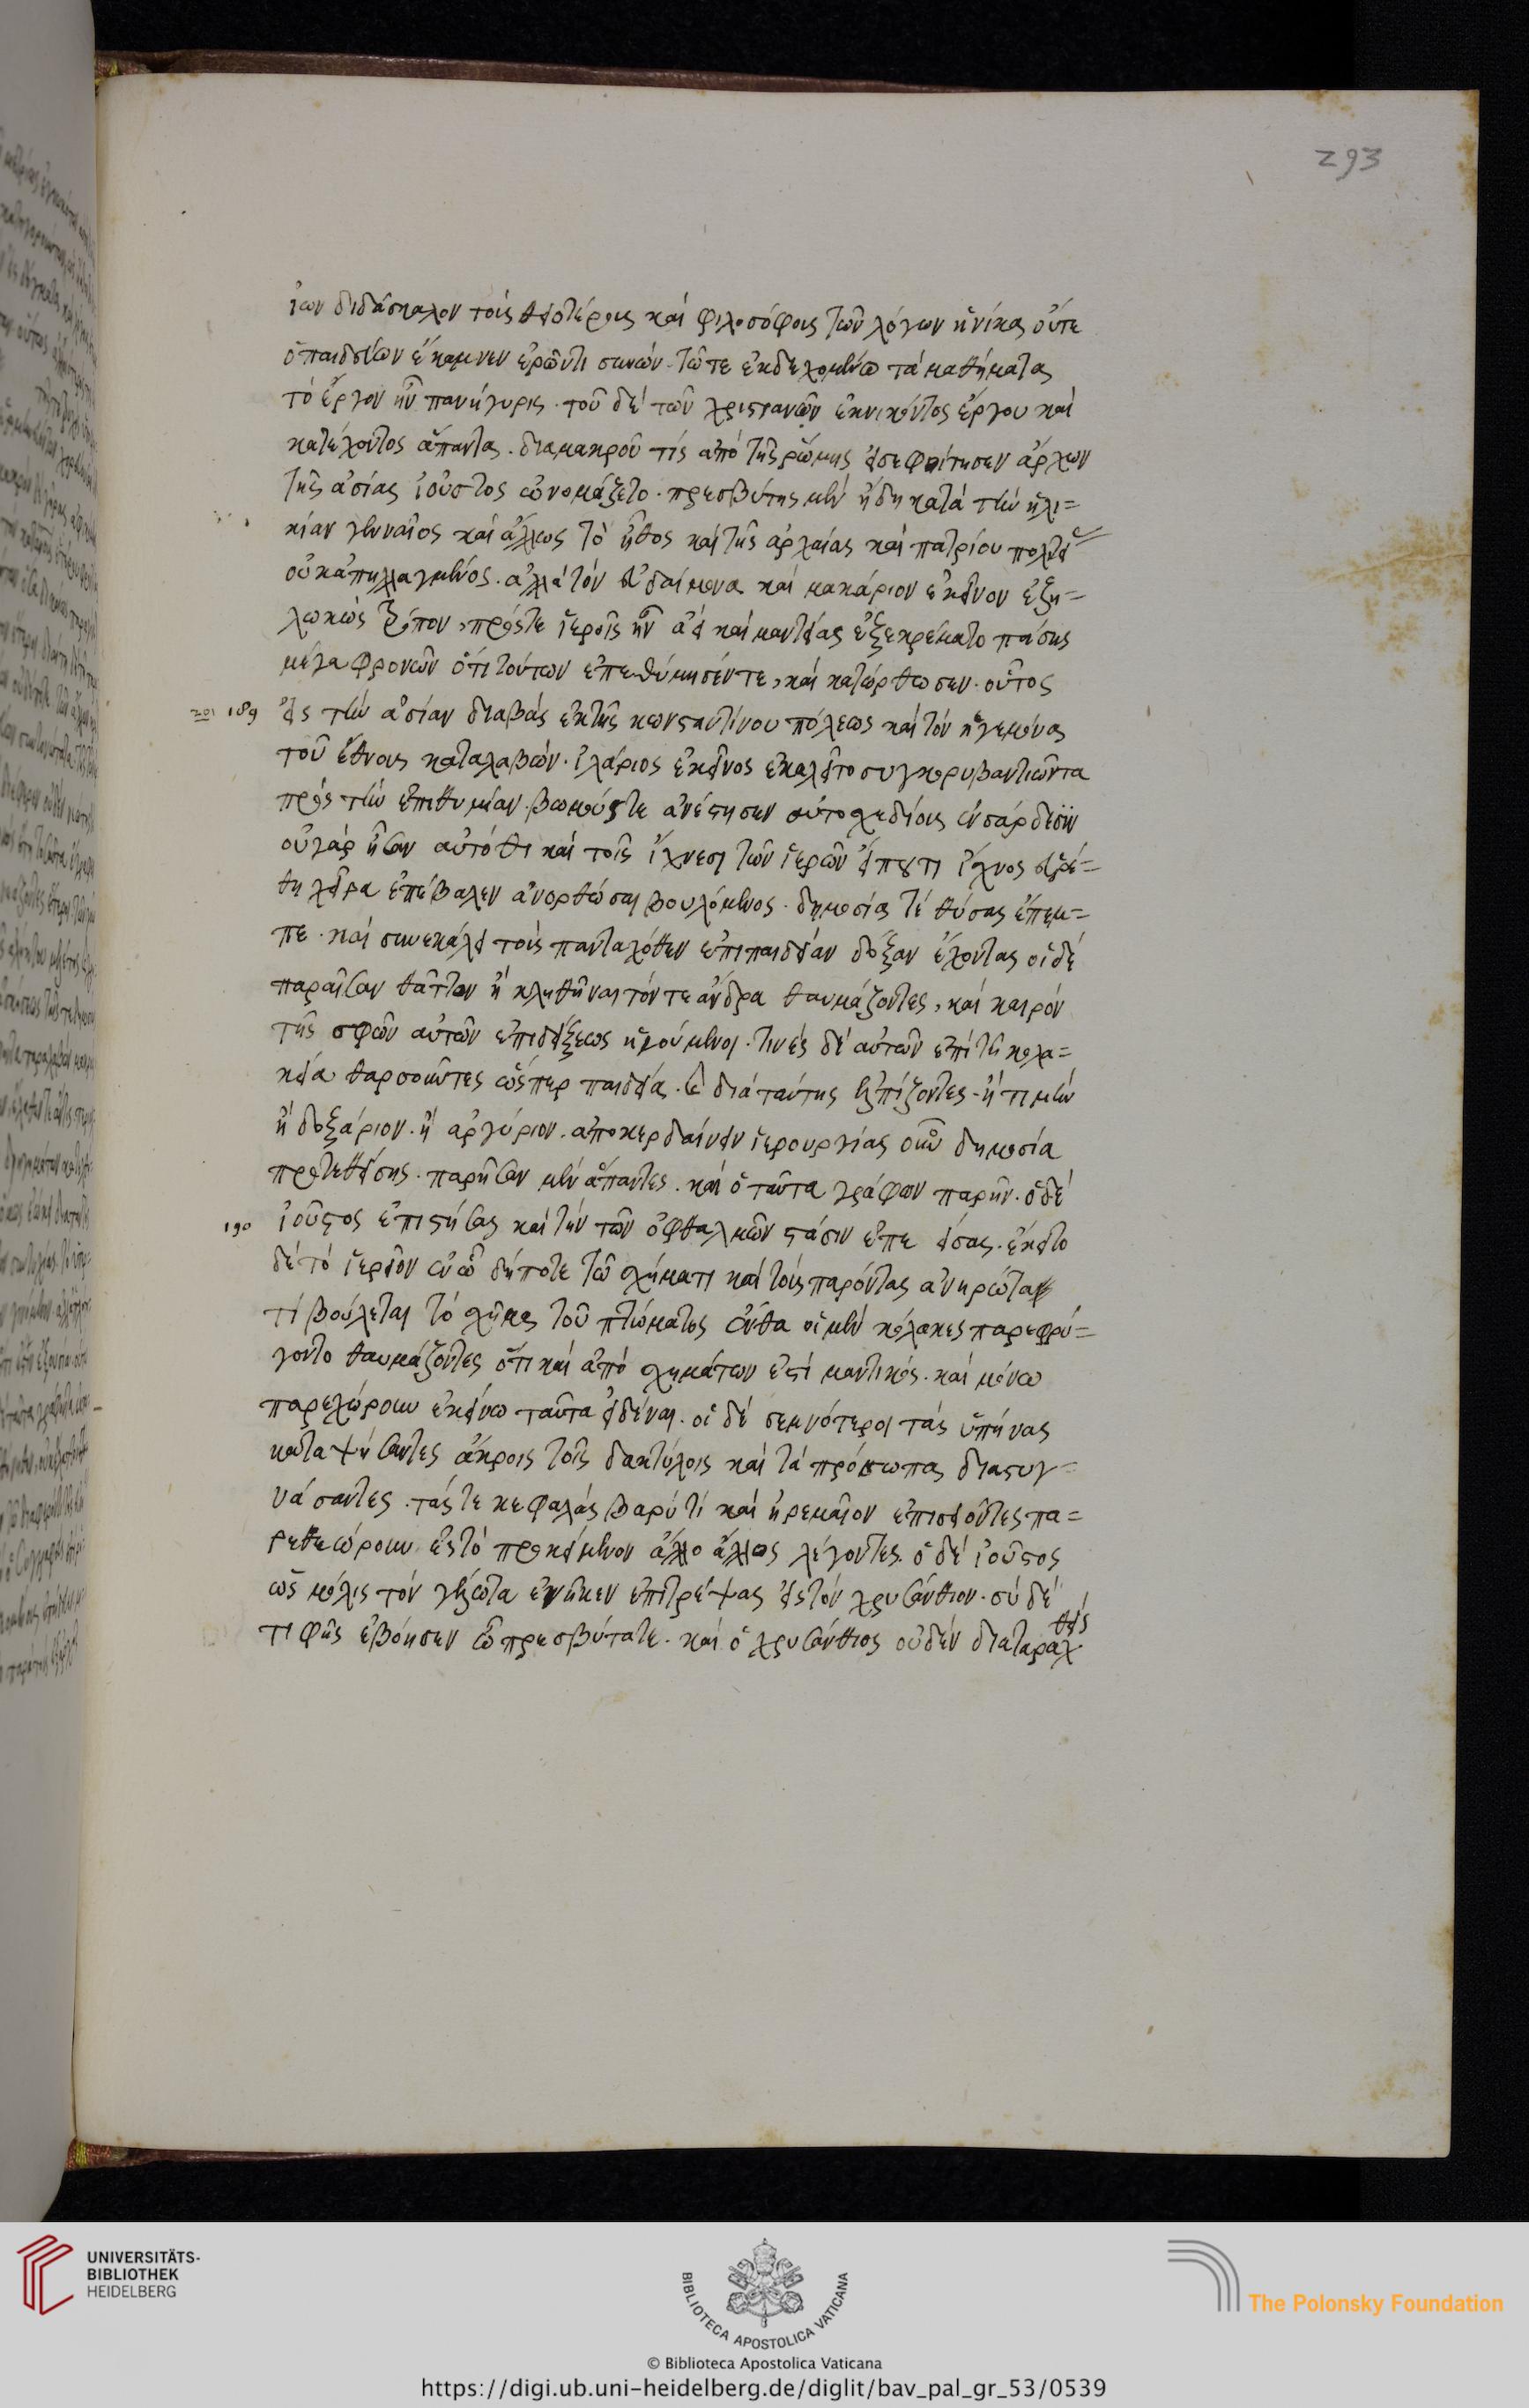 293
ίων διδάσκαλον τοῖς θειοτέροις καὶ φιλοσόφοις τῶν λόγων ἡνίκα οὔτε
ὁ παιδεύων ἔκαμνεν ἐρῶντι συνών. τῶ τε ἐκδεχομένω τὰ μαθήματα
τὸ ἔργον ἦν πανήγυρις. τοῦ δὲ τῶν χριστιανῶν ἐκνικῶντος ἔργου καὶ
κατέχοντος ἅπαντα. διαμακροῦ τίς ἀπὸ τῆς ῥώμης εἰσεφοίτησεν ἄρχων
τῆς ἀσίας ἰοῦστος ὠνομάζετο. πρεσβύτης μὲν ἤδη κατὰ τὴν ἡλι=
κίαν γενναῖος καὶ ἄλλως τὸ ἦθος καὶ τῆς ἀρχαίας καὶ πατρίου πολιτεί
οὐκ ἀπηλλαγμένος. ἀλλὰ τὸν εὐδαίμονα καὶ μακάριον ἐκεῖνον ἐζη=
λωκὼς τρόπον, πρόςτε ἱεροῖς ἦν ἀεὶ καὶ μαντείας ἐξεκρέματο πάσης
μέγα φρονῶν ὅτι τούτων ἐπεθύμησέν τε, καὶ κατώρθωσεν. οὗτος
201 189 εἰς τὴν ἀσίαν διαβὰς ἐκ τῆς κωνσταντίνου πόλεως καὶ τὸν ἡγεμόνα
τοῦ ἔθνους καταλαβών. ἱλάριος ἐκεῖνος ἐκαλεῖτο συγκορυβαντιῶντα
πρὸς τὴν ἐπιθυμίαν. βωμούς τε ἀνέστησεν αὐτοσχεδίους ἐν σάρδεσιν
οὐ γὰρ ἦσαν αὐτόθι καὶ τοῖς ἴχνεσι τῶν ἱερῶν εἴπου τι ἴχνος εὑρέ=
θη χεῖρα ἐπέβαλεν ἀνορθῶσαι βουλόμενος. δημοσία τὲ θύσας ἔπεμ=
πε. καὶ συνεκάλει τοὺς πανταχόθεν ἐπὶ παιδείαν δόξαν ἔχοντας οἱ δὲ
παρῆσαν θᾶττον ἢ κληθῆναι τόν τε ἄνδρα θαυμάζοντες, καὶ καιρὸν
τῆς σφῶν αὐτῶν ἐπιδείξεως ἡγούμενοι. τινὲς δὲ αὐτῶν ἐπὶ τῆ κολα=
κεία θαρσοῦντες ὥσπερ παιδεία. καὶ διὰ ταύτης ἐλπίζοντες. ἢ τιμὴν
ἢ δοξάριον. ἢ ἀργύριον. ἀποκερδαίνειν ἱερουργίας οὖν δημοσία
προτεθείσης. παρῆσαν μὲν ἅπαντες. καὶ ὁ ταῦτα γράφων παρῆν. ὁ δὲ
190 ἰοῦστος ἐπιστήσας καὶ τὴν τῶν ὀφθαλμῶν στάσιν ἐπε είσας. ἔκειτο
δὲ τὸ ἱερεῖον ἐν ὧ δήποτε τῶ σχήματι καὶ τοὺς παρόντας ἀνηρώτα
τί βούλεται τὸ σχῆμα τοῦ πτώματος ἔνθα οἱ μὲν κόλακες παρεφρύ=
γοντο θαυμάζοντες ὅτι καὶ ἀπὸ σχημάτων ἐστὶ μαντικός. καὶ μόνω
παρεχώρουν ἐκείνω ταῦτα εἰδέναι. οἱ δὲ σεμνότεροι τὰς ὑπήνας
καταψήσαντες ἄκροις τοῖς δακτύλοις καὶ τὰ πρόσωπα διαστυγ=
νάσαντες. τάς τε κεφαλὰς βαρύ τι καὶ ἠρεμαῖον ἐπισείοντες πα=
ρεθεώρουν ἐς τὸ προκείμενον ἄλλο ἄλλος λέγοντες. ὁ δὲ ἰοῦστος
ὡς μόλις τὸν γέλωτα ἐνῆκεν ἐπιτρέψας εἰς τὸν χρυσάνθιον. σὺ δὲ
τί φῆς ἐβόησεν ὦ πρεσβύτατε. καὶ ὁ χρυσάνθιος οὐδὲν διαταραχθεὶς
UNIVERSITÄTS-
BIBLIOTHEK
HEIDELBERG
BIBLIOTECA APOSTOLICA VATICANA
© Biblioteca Apostolica Vaticana
The Polonsky Foundation
https://digi.ub.uni-heidelberg.de/diglit/bav_pal_gr_53/0539